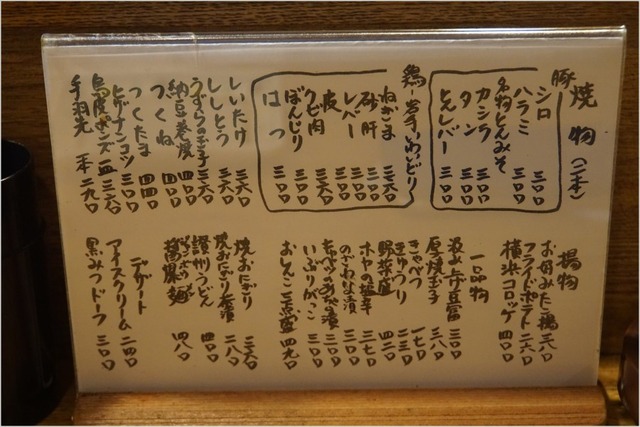 焼物(二本)
豚
シロ 三〇〇
ハラミ 三〇〇
名物とんみそ 三〇〇
カシラ 三〇〇
タン 三〇〇
とんレバー 三〇〇
鶏 岩手いわいどり
ねぎま 三六〇
砂肝 三〇〇
レバー 三〇〇
皮 三〇〇
クビ肉 三六〇
ぼんじり 三〇〇
はつ 三〇〇
しいたけ 三六〇
ししとう 三〇〇
うずらの玉子 三六〇
納豆巻焼 四〇〇
つくね 四〇〇
つくたま 四四〇
ヒザナンコツ 三〇〇
鳥皮ポンズ 一皿 三六〇
手羽先 一本 二九〇
揚物
お好みたこ揚 三八〇
フライドポテト 二六〇
横浜コロッケ 四〇〇
一品物
汲み上げ豆富 三〇〇
厚焼玉子 三八〇
きゃべつ 二〇〇
きゅうり 二三〇
野菜盛 四二〇
ホヤの塩辛 三七〇
のざわな漬 三〇〇
キャベツあさ漬 三〇〇
いぶりがっこ 三〇〇
おしんこ三点盛 四九〇
焼おにぎり 二六〇
焼おにぎり茶漬 二八〇
讃州うどん 四〇〇
爆麺 四八〇
デザート
アイスクリーム 二四〇
黒みつドーフ 三〇〇